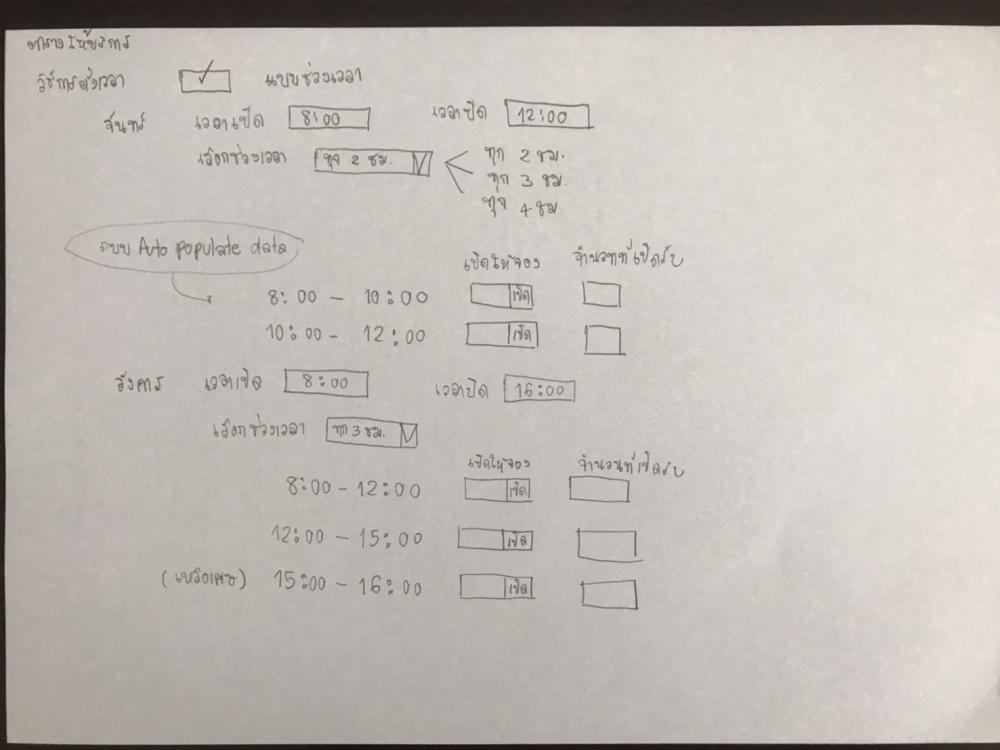 ตารางให้บริการ
วิธีการตั้งเวลา ✓ แบบช่วงเวลา
จันทร์ เวลาเปิด 8:00 เวลาปิด 12:00
เลือกช่วงเวลา ทุก 2 ชม. ทุก 2 ชม.
ทุก 3 ชม.
ทุก 4 ชม.
ระบบ Auto populate data
เปิดให้จอง จำนวนที่เปิดรับ
8:00 - 10:00 เปิด
10:00 - 12:00 เปิด
อังคาร เวลาเปิด 8:00 เวลาปิด 16:00
เลือกช่วงเวลา ทุก 3 ชม.
เปิดให้จอง จำนวนที่เปิดรับ
8:00 - 12:00 เปิด
12:00 - 15:00 เปิด
(เหลือเศษ) 15:00 - 16:00 เปิด